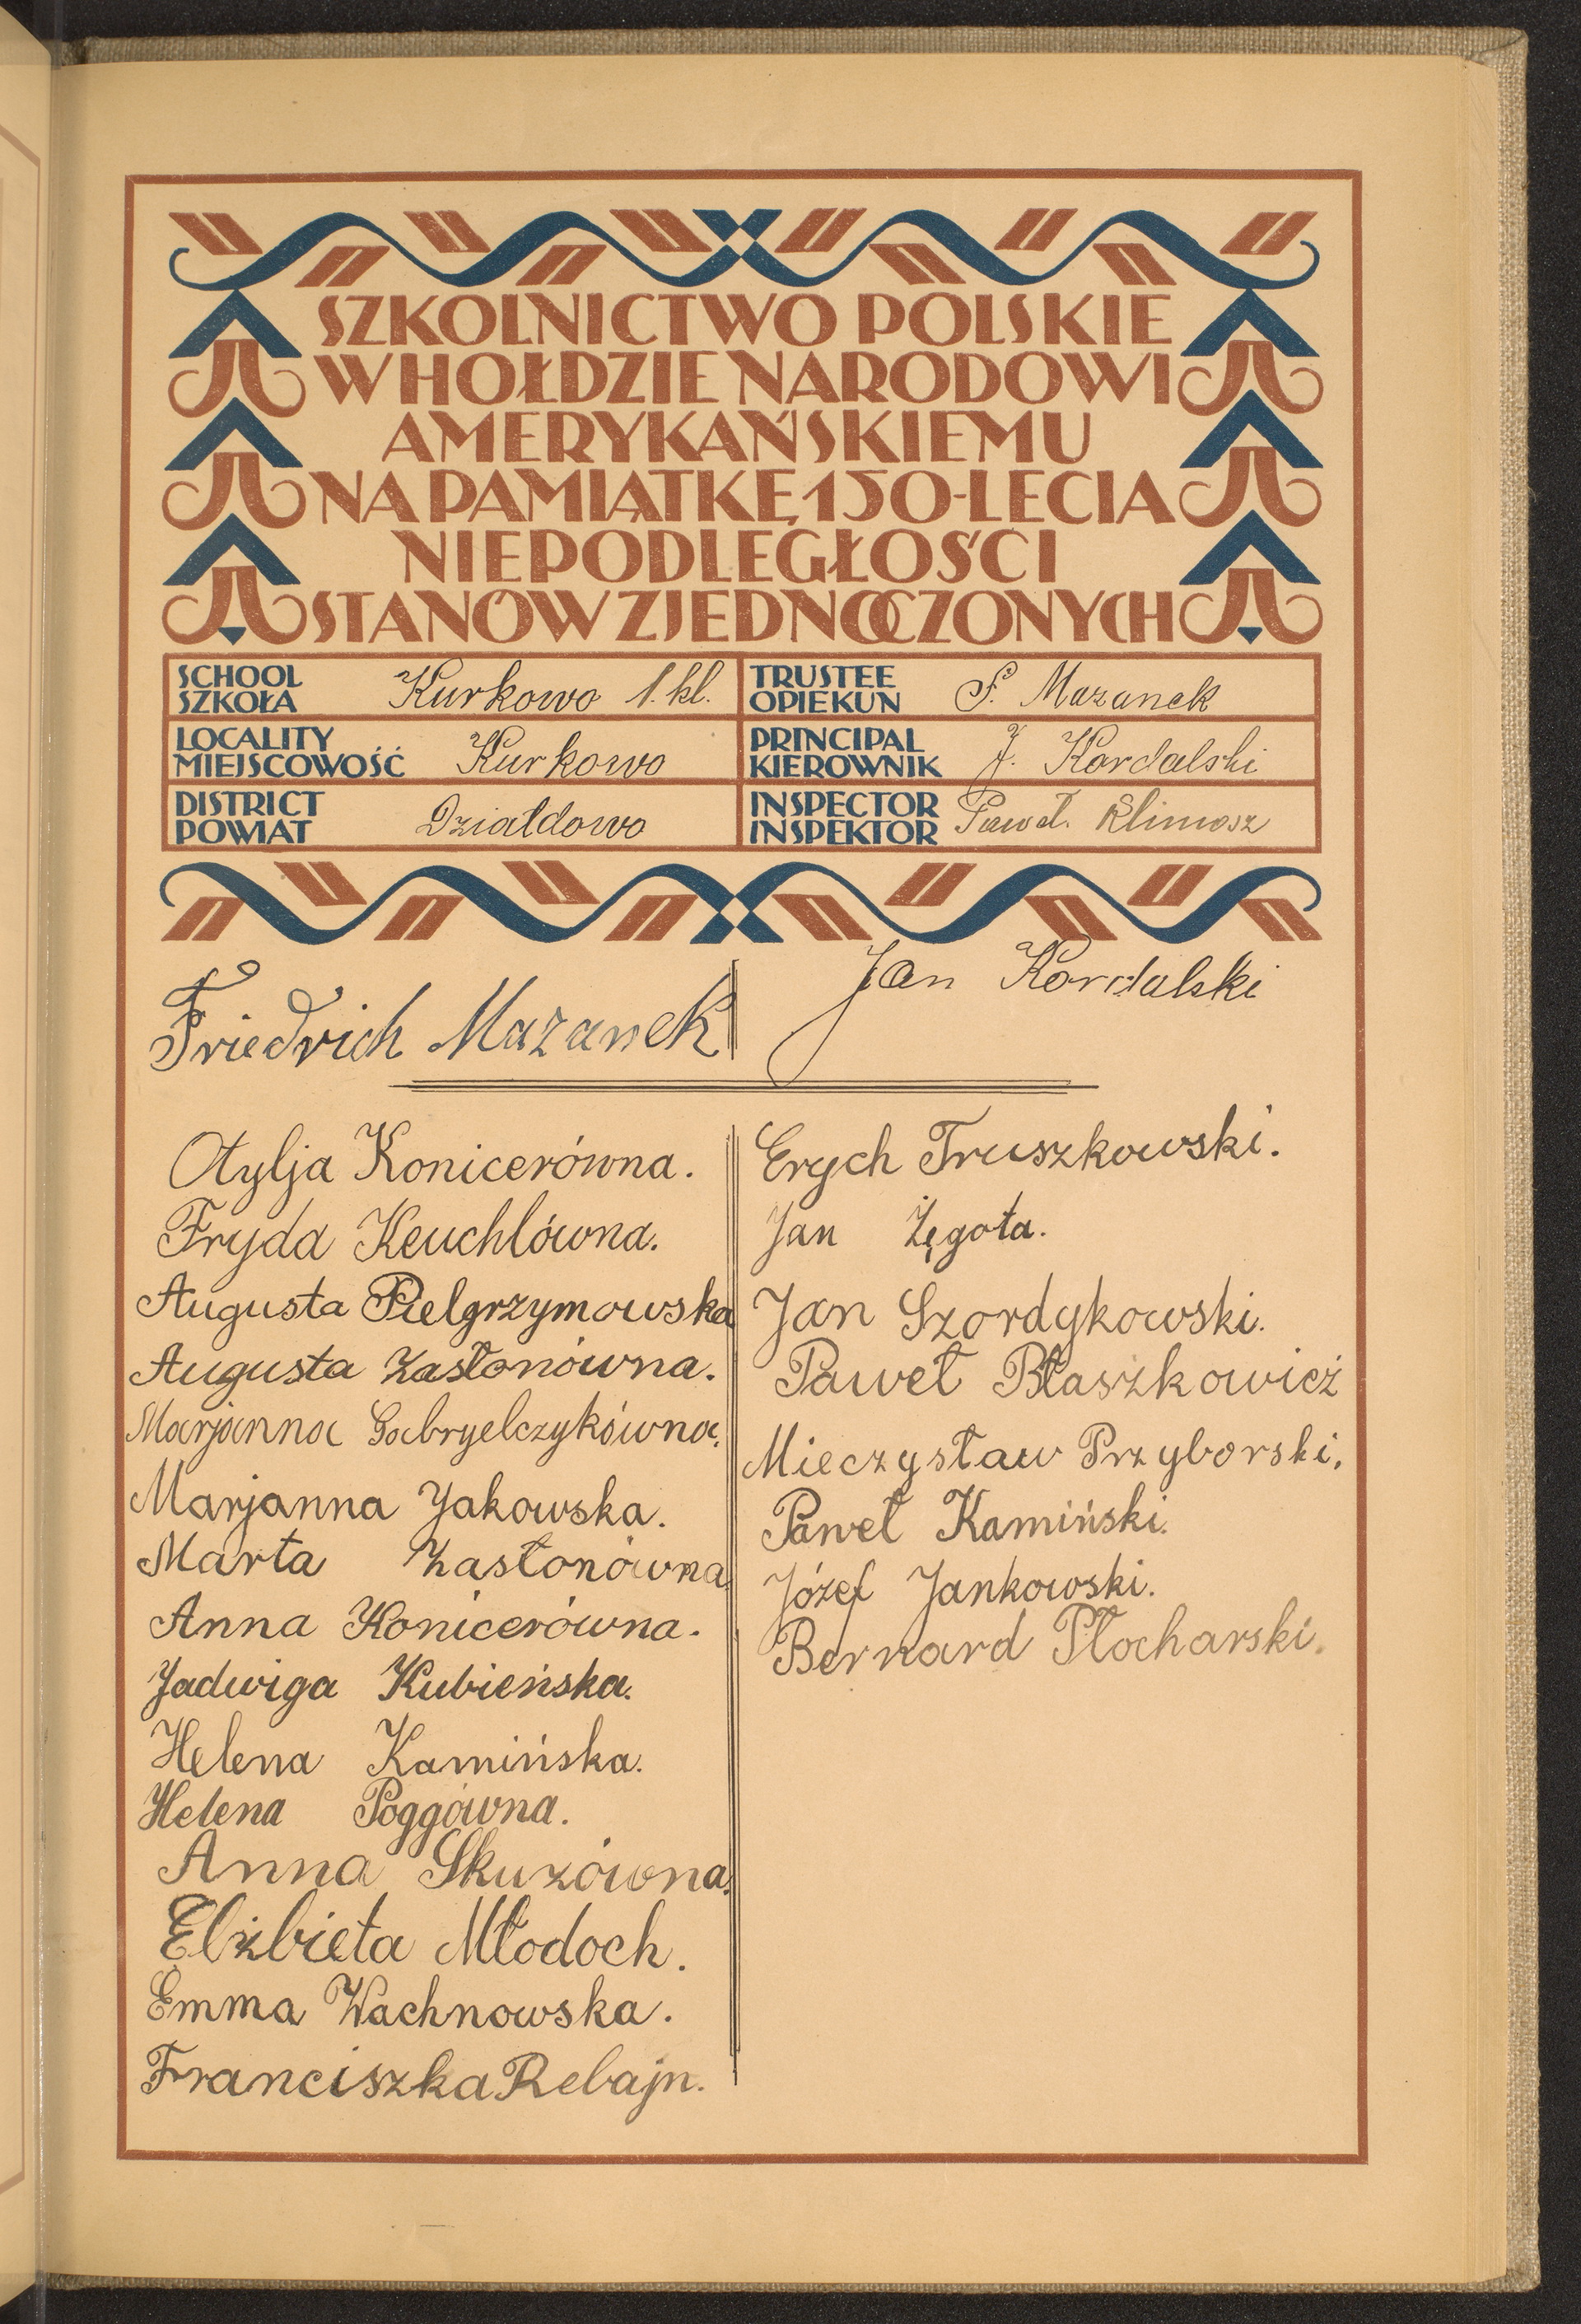 SZKOLNICTWO POLSKIE
W HOŁDZIE NARODOWI
AMERYKAŃSKIEMU
NA PAMIĄTKĘ 150-LECIA
NIEPODLEGŁOŚCI
STANÓW ZJEDNOCZONYCH
SCHOOL
SZKOŁA Kurkowo 1. kl.
TRUSTEE
OPIEKUN F. Mazanek
LOCALITY
MIEJSCOWOŚĆ Kurkowo
PRINCIPAL
KIEROWNIK J. Kordalski
DISTRICT
POWIAT Działdowo
INSPECTOR
INSPEKTOR Paweł. Klimosz
Friedrich Mazanek
Jan Kordalski
Otylja Konicerówna.
Fryda Keuchlówna.
Augusta Pielgrzymowska
Augusta Zasłonówna.
Marjanna Gabryelczykówna.
Marjanna Jakowska.
Marta Zasłonówna
Anna Konicerówna.
Jadwiga Kubieńska.
Helena Kamińska.
Helena Poggówna.
Anna Skuzówna.
Elżbieta Młodoch.
Emma Wachnowska.
Franciszka Rebajn.
Erych Truszkowski.
Jan Żęgota.
Jan Szordykowski.
Paweł Błaszkowicż
Mieczysław Przyborski.
Paweł Kamiński.
Józef Jankowski.
Bernard Płocharski.